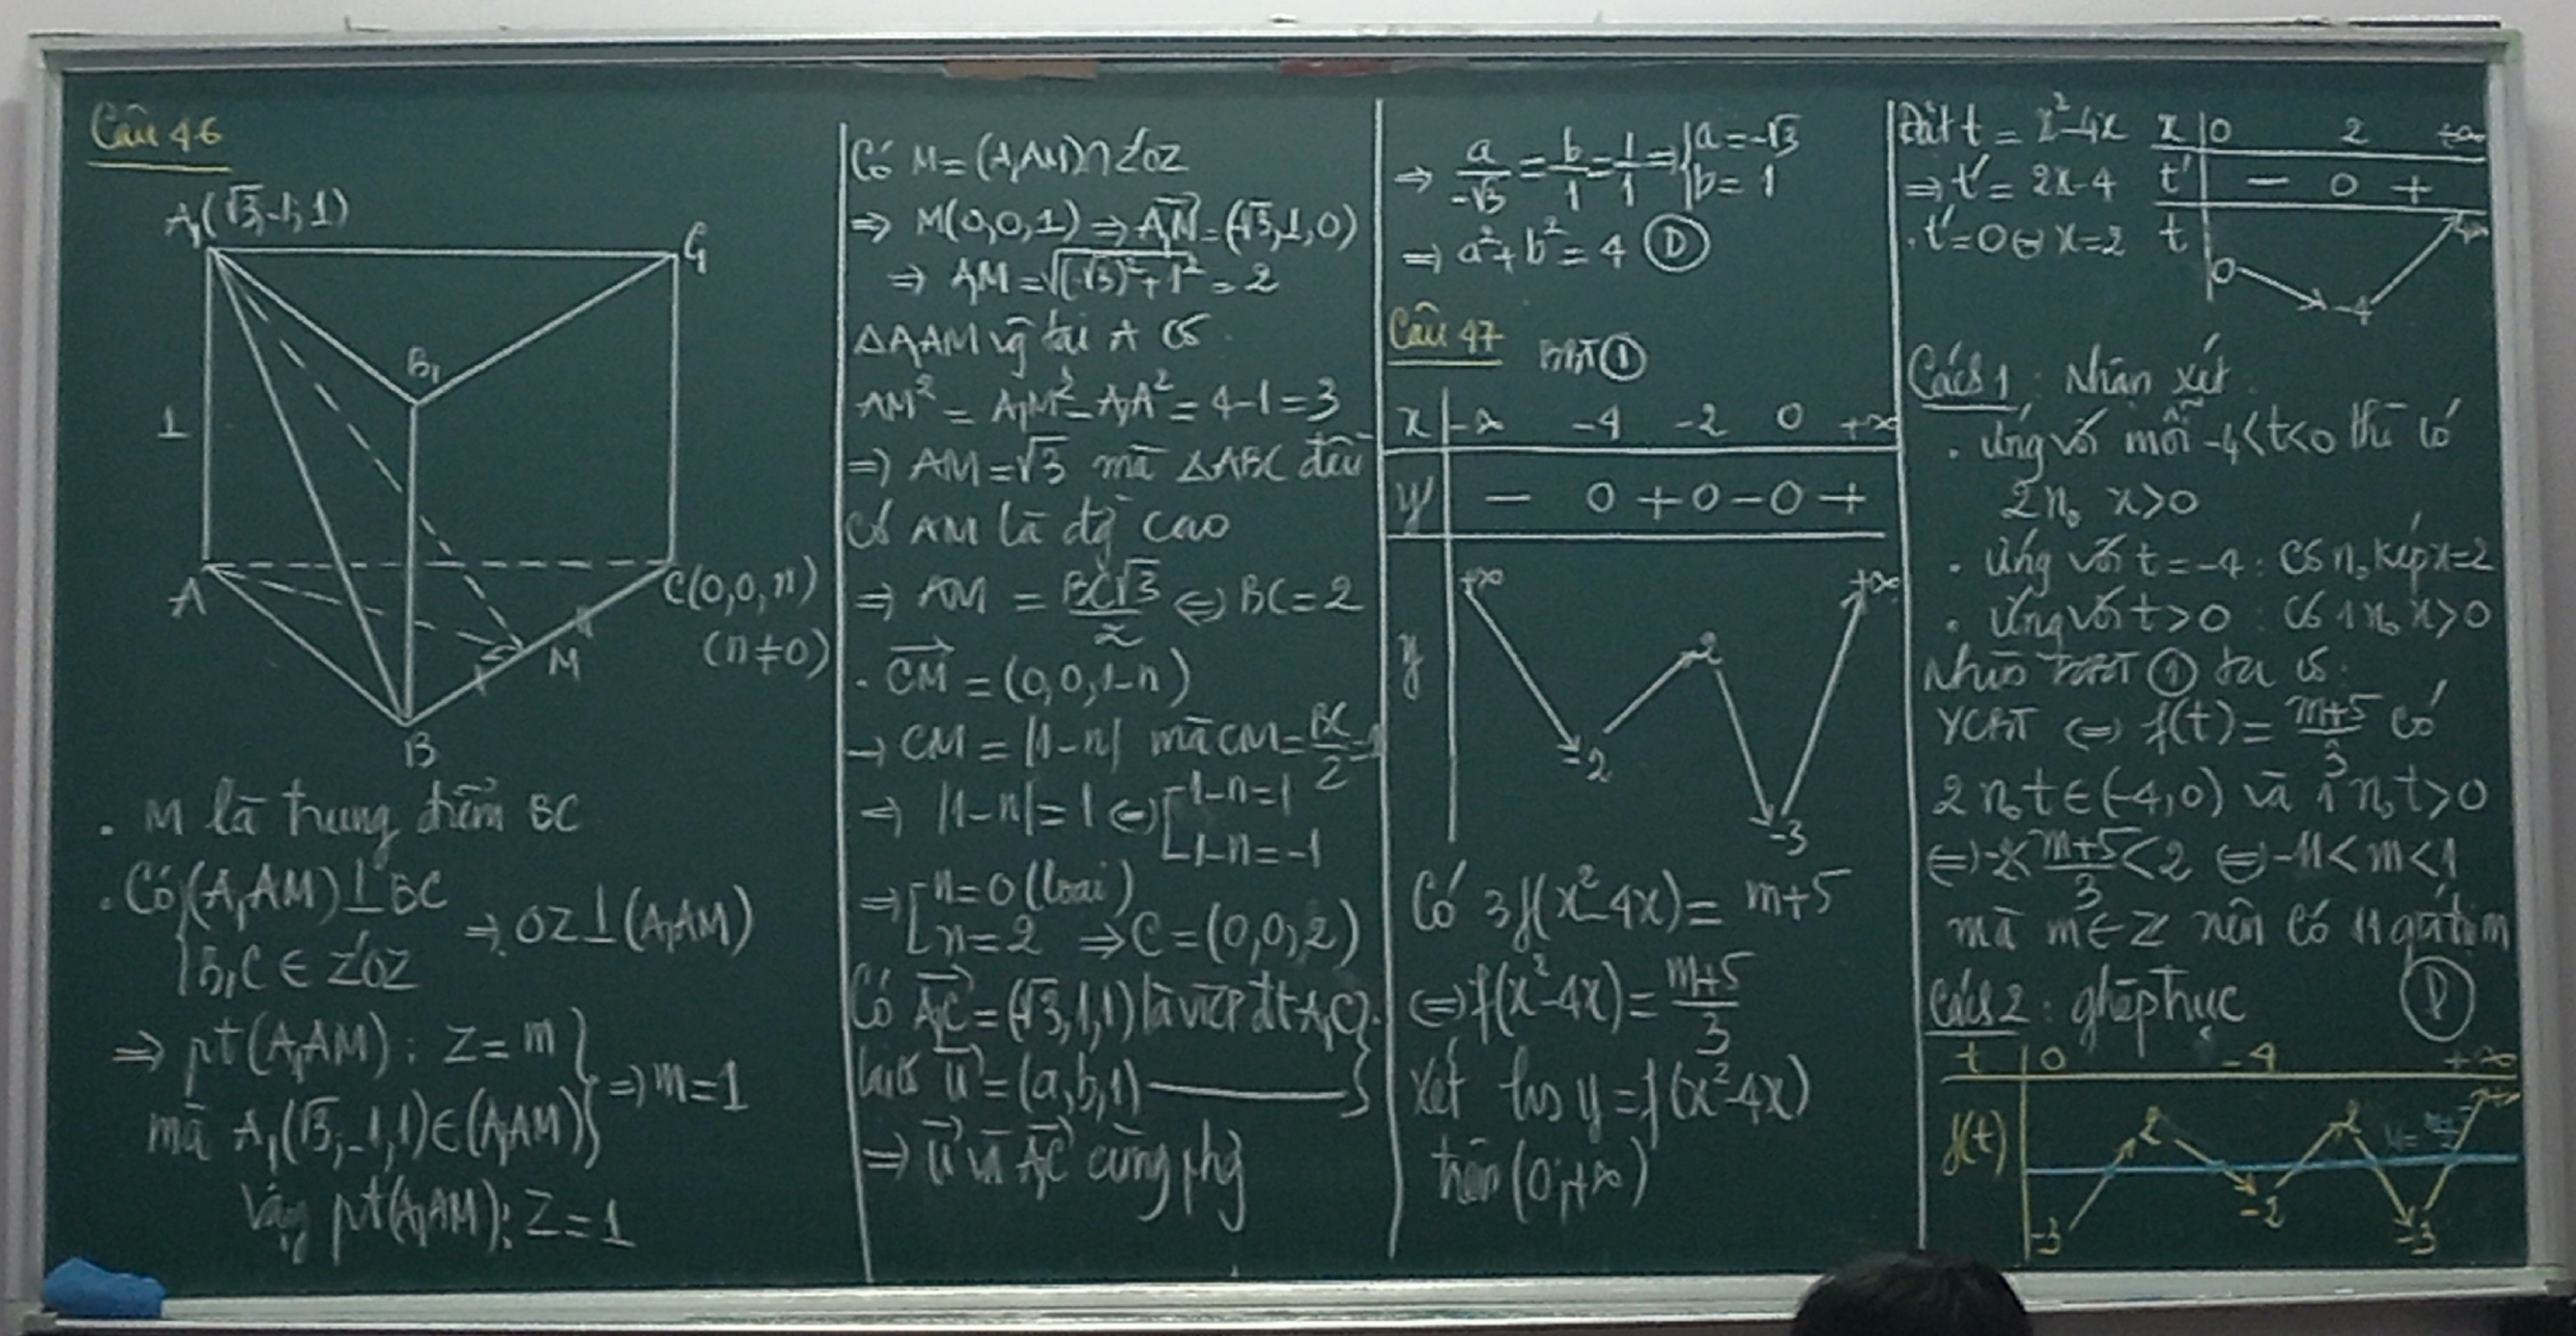 Câu 46
A₁(√3,-1,1)
C₁
B₁
1
A
C(0,0,n)
(n≠0)
M
B
. M là trung điểm BC
. Có {(A₁AM)⊥BC
B,C ∈ z'Oz
⇒ OZ⊥(A₁AM)
⇒ pt(A₁AM): Z=m
mà A₁(√3,-1,1)∈(A₁AM)
} ⇒ m=1
Vậy pt(A₁AM): Z=1
Có M=(A₁AM)∩z'Oz
⇒ M(0,0,1) ⇒ A₁M=(-√3,1,0)
⇒ A₁M=√((-√3)²+1²) = 2
△A₁AM vg tại A có
AM² = A₁M²-A₁A² = 4-1=3
⇒ AM=√3 mà △ABC đều
có AM là đg cao
⇒ AM = BC√3/2 ⇔ BC=2
. CM = (0,0,1-n)
→ CM = |1-n| mà CM=BC/2=1
⇒ |1-n|=1 ⇔ [1-n=1
1-n=-1
⇒ [n=0 (loại)
n=2 ⇒ C=(0,0,2)
Có A₁C=(-√3,1,1) là vtcp đt A₁C
u=(a,b,1)
⇒ u và A₁C cùng phg
⇒ a/-√3 = b/1 = 1/1 ⇒ {a=-√3
b=1
⇒ a²+b²=4 (D)
Câu 47
BBT ①
x -∞ -4 -2 0 +∞
y' - 0 + 0 - 0 +
y +∞ -2 2 -3 +∞
Có 3f(x²-4x) = m+5
⇔ f(x²-4x) = m+5/3
Xét hs y=f(x²-4x)
trên (0;+∞)
Đặt t = x²-4x
⇒ t' = 2x-4
. t'=0 ⇔ x=2
x 0 2 +∞
t' - 0 +
t 0 -4 +∞
Cách 1: Nhận xét
. Ứng với mỗi -4<t<0 thì có
2 n₀ x>0
. Ứng với t=-4: có n₀ kép x=2
. Ứng với t>0: có 1 n₀ x>0
Nhìn BBT ① ta có:
YCBT ⇔ f(t) = m+5/3 có
2 n₀ t∈(-4,0) và 1 n₀ t>0
⇔ -2<m+5/3<2 ⇔ -11<m<1
mà m∈Z nên có 11 giá trị m
Cách 2: ghép trục
t 0 -4 +∞
f(t) -3 2 -2 2 -3 +∞